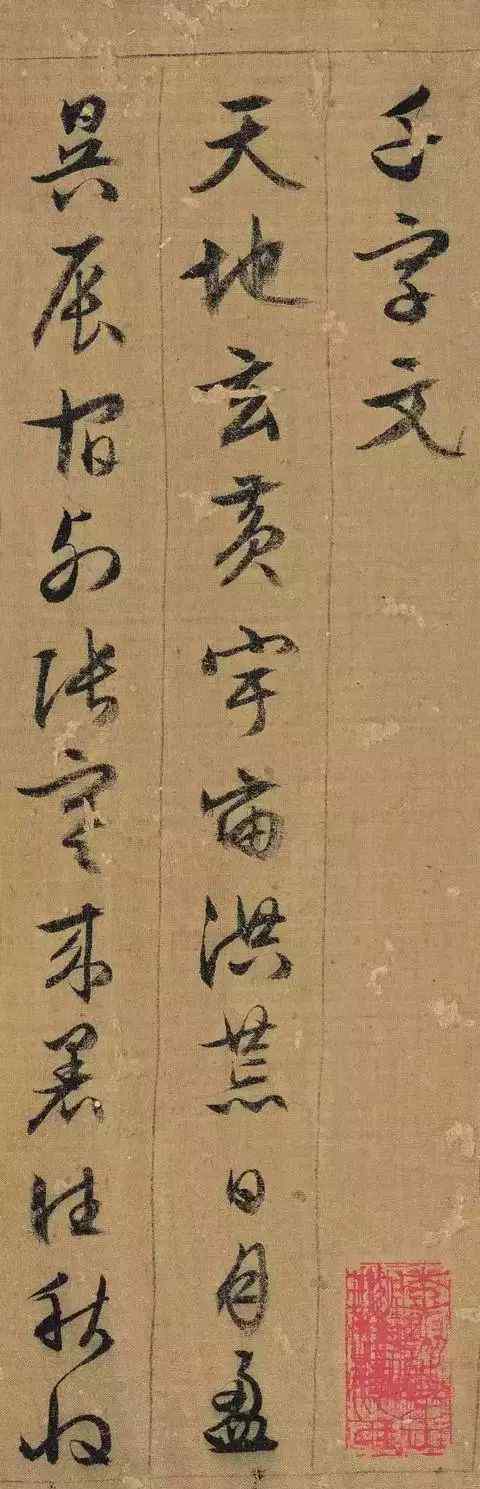 千字文
天地玄黄宇宙洪荒日月盈
昃辰宿列張寒來暑往秋收